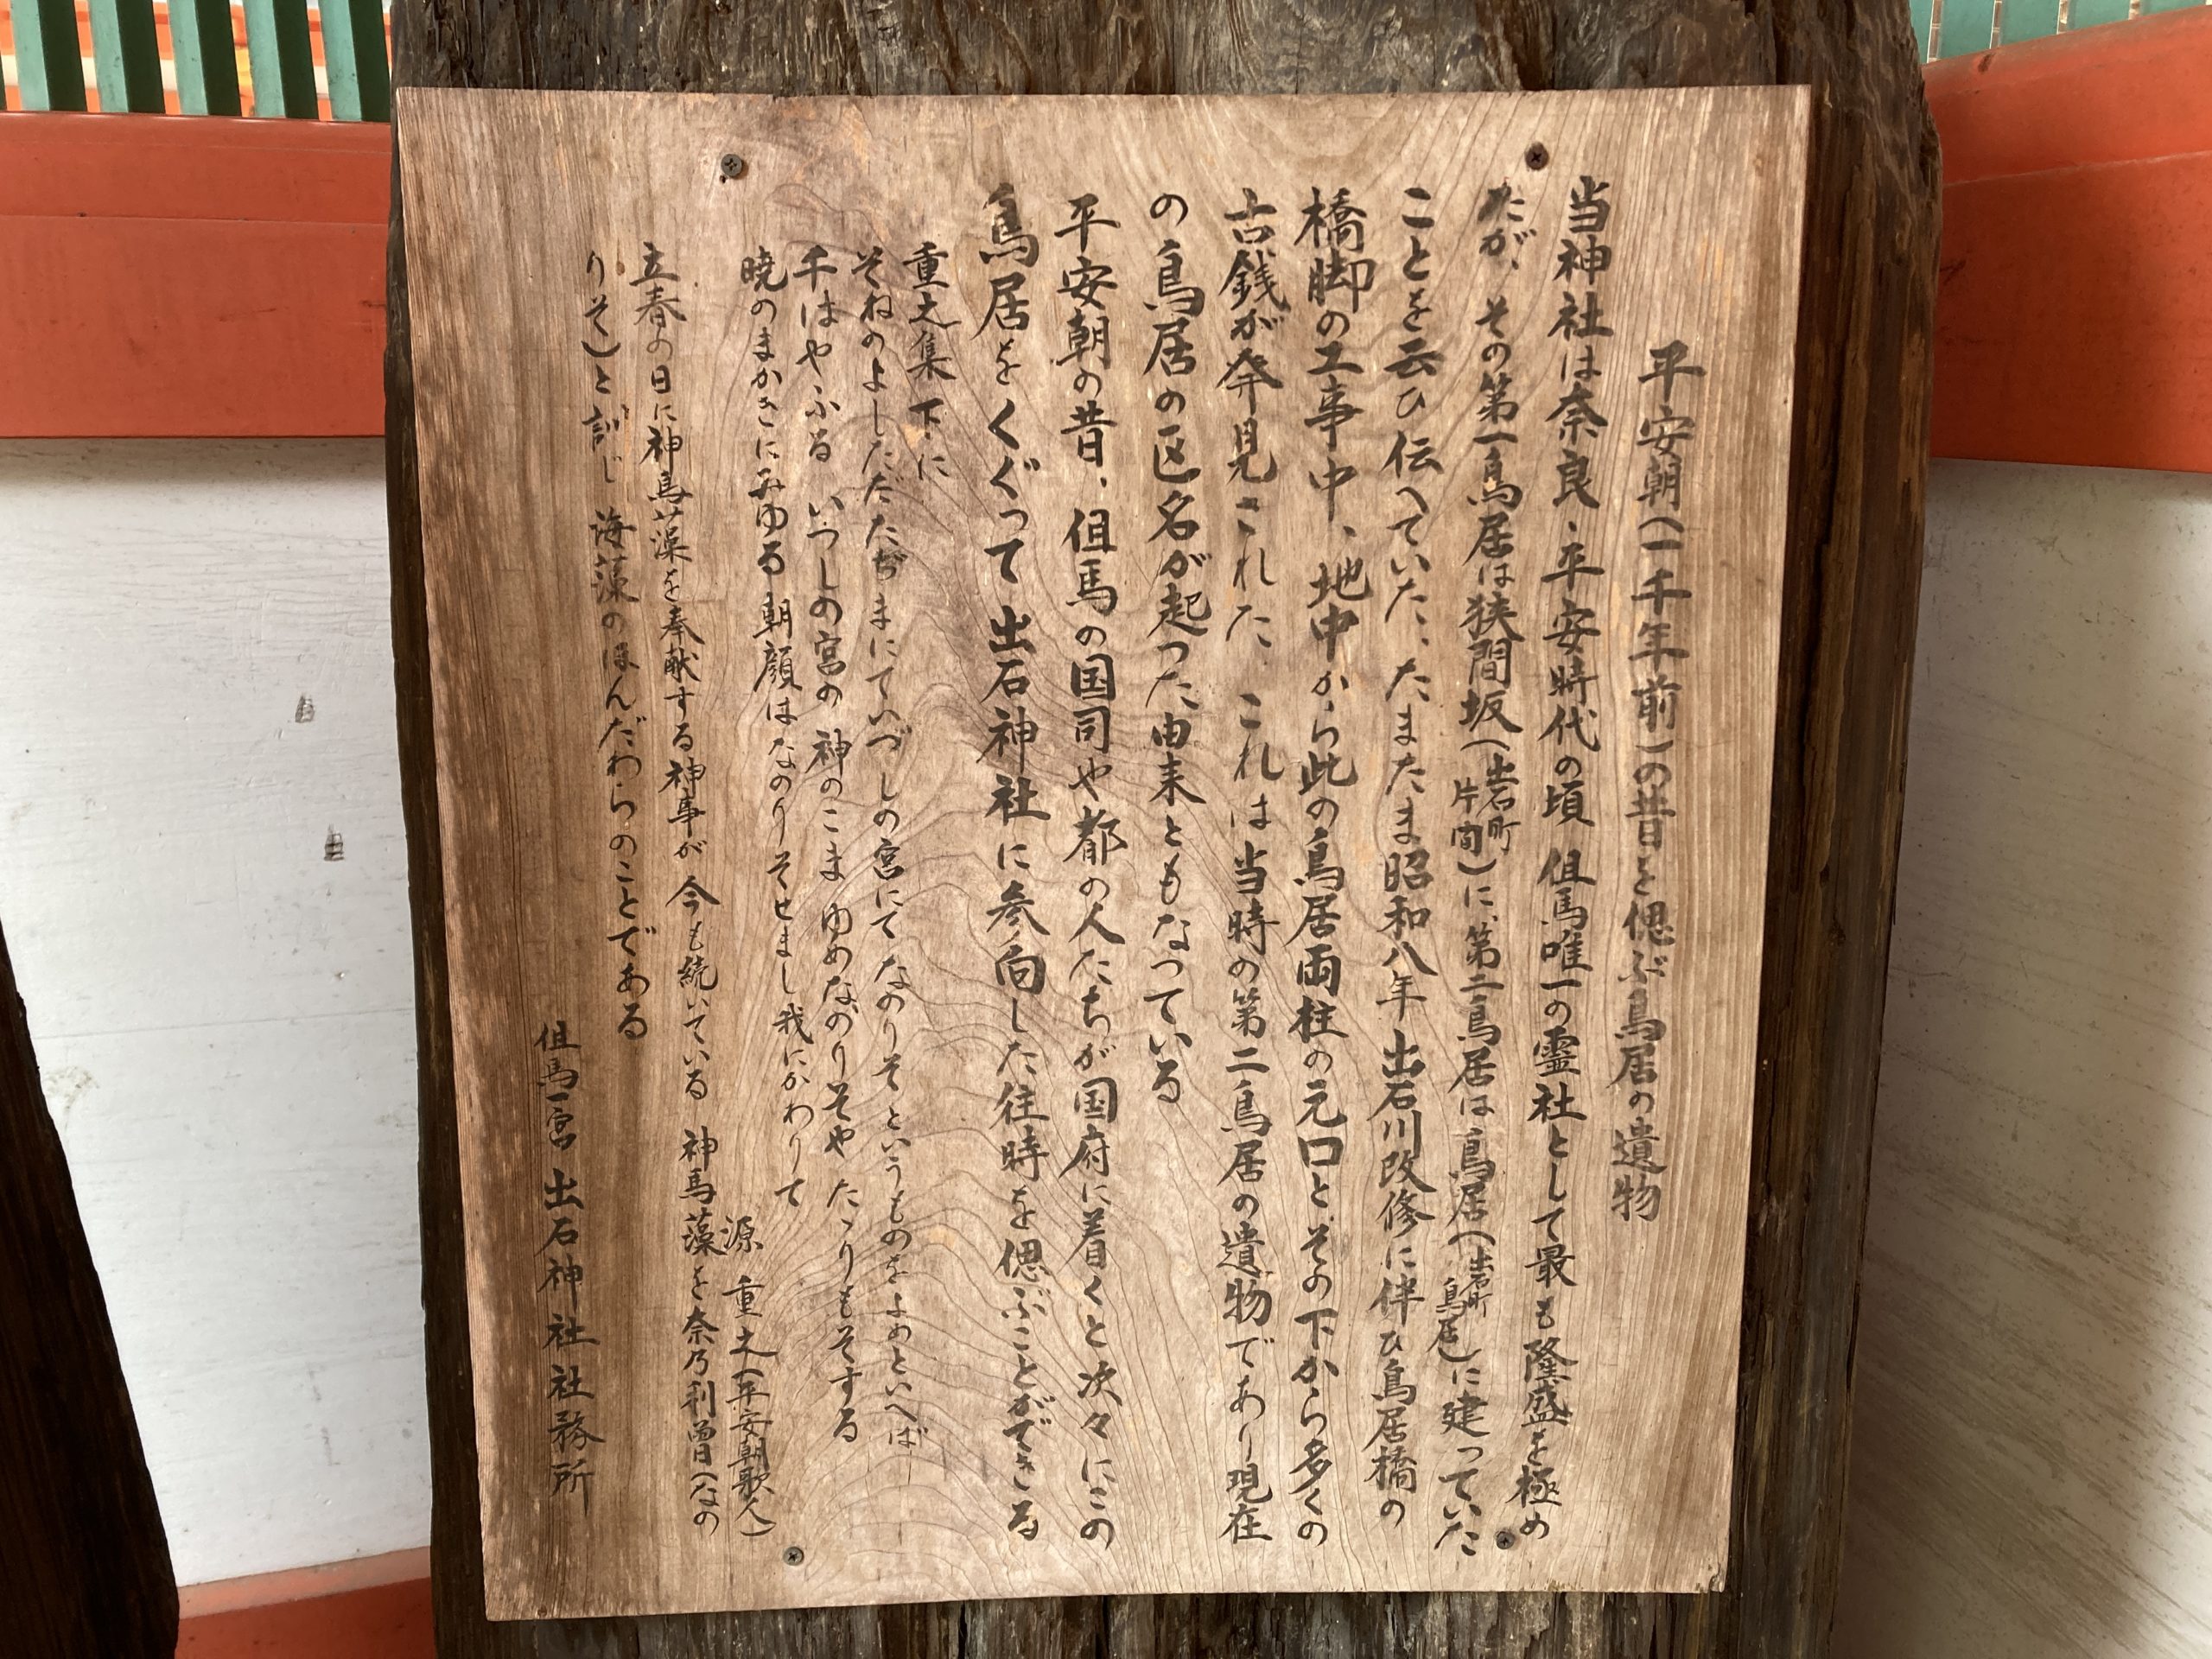 平安朝(一千年前)の昔を偲ぶ鳥居の遺物
当神社は奈良、平安時代の頃 但馬唯一の霊社として最も隆盛を極め
たが、その第一鳥居は狭間坂(出石町片間)に、第二鳥居は鳥居(出石町鳥居)に建っていた
ことを云ひ伝へていた、たまたま昭和八年 出石川改修に伴ひ鳥居橋の
橋脚の工事中、地中から此の鳥居両柱の元口とその下から多くの
古銭が発見された、これは当時の第二鳥居の遺物であり現在
の鳥居の区名が起った由来ともなっている
平安朝の昔、但馬の国司や都の人たちが国府に着くと次々にこの
鳥居をくぐって出石神社に参向した往時を偲ぶことができる
重之集 下に
そねのよしただたぢまにていづしの宮にてなのりそというものをよめといへば
千はやふる いつしの宮の 神のこま ゆめなのりそや たゝりもそする
暁のまかきにみゆる朝顔はなのりそせまし我にかわりて
源 重之(平安朝歌人)
立春の日に神馬藻を奉献する神事が 今も続いている 神馬藻を奈乃利曽(なの
りそ)と訓じ 海藻のほんだわらのことである
但馬一宮 出石神社社務所